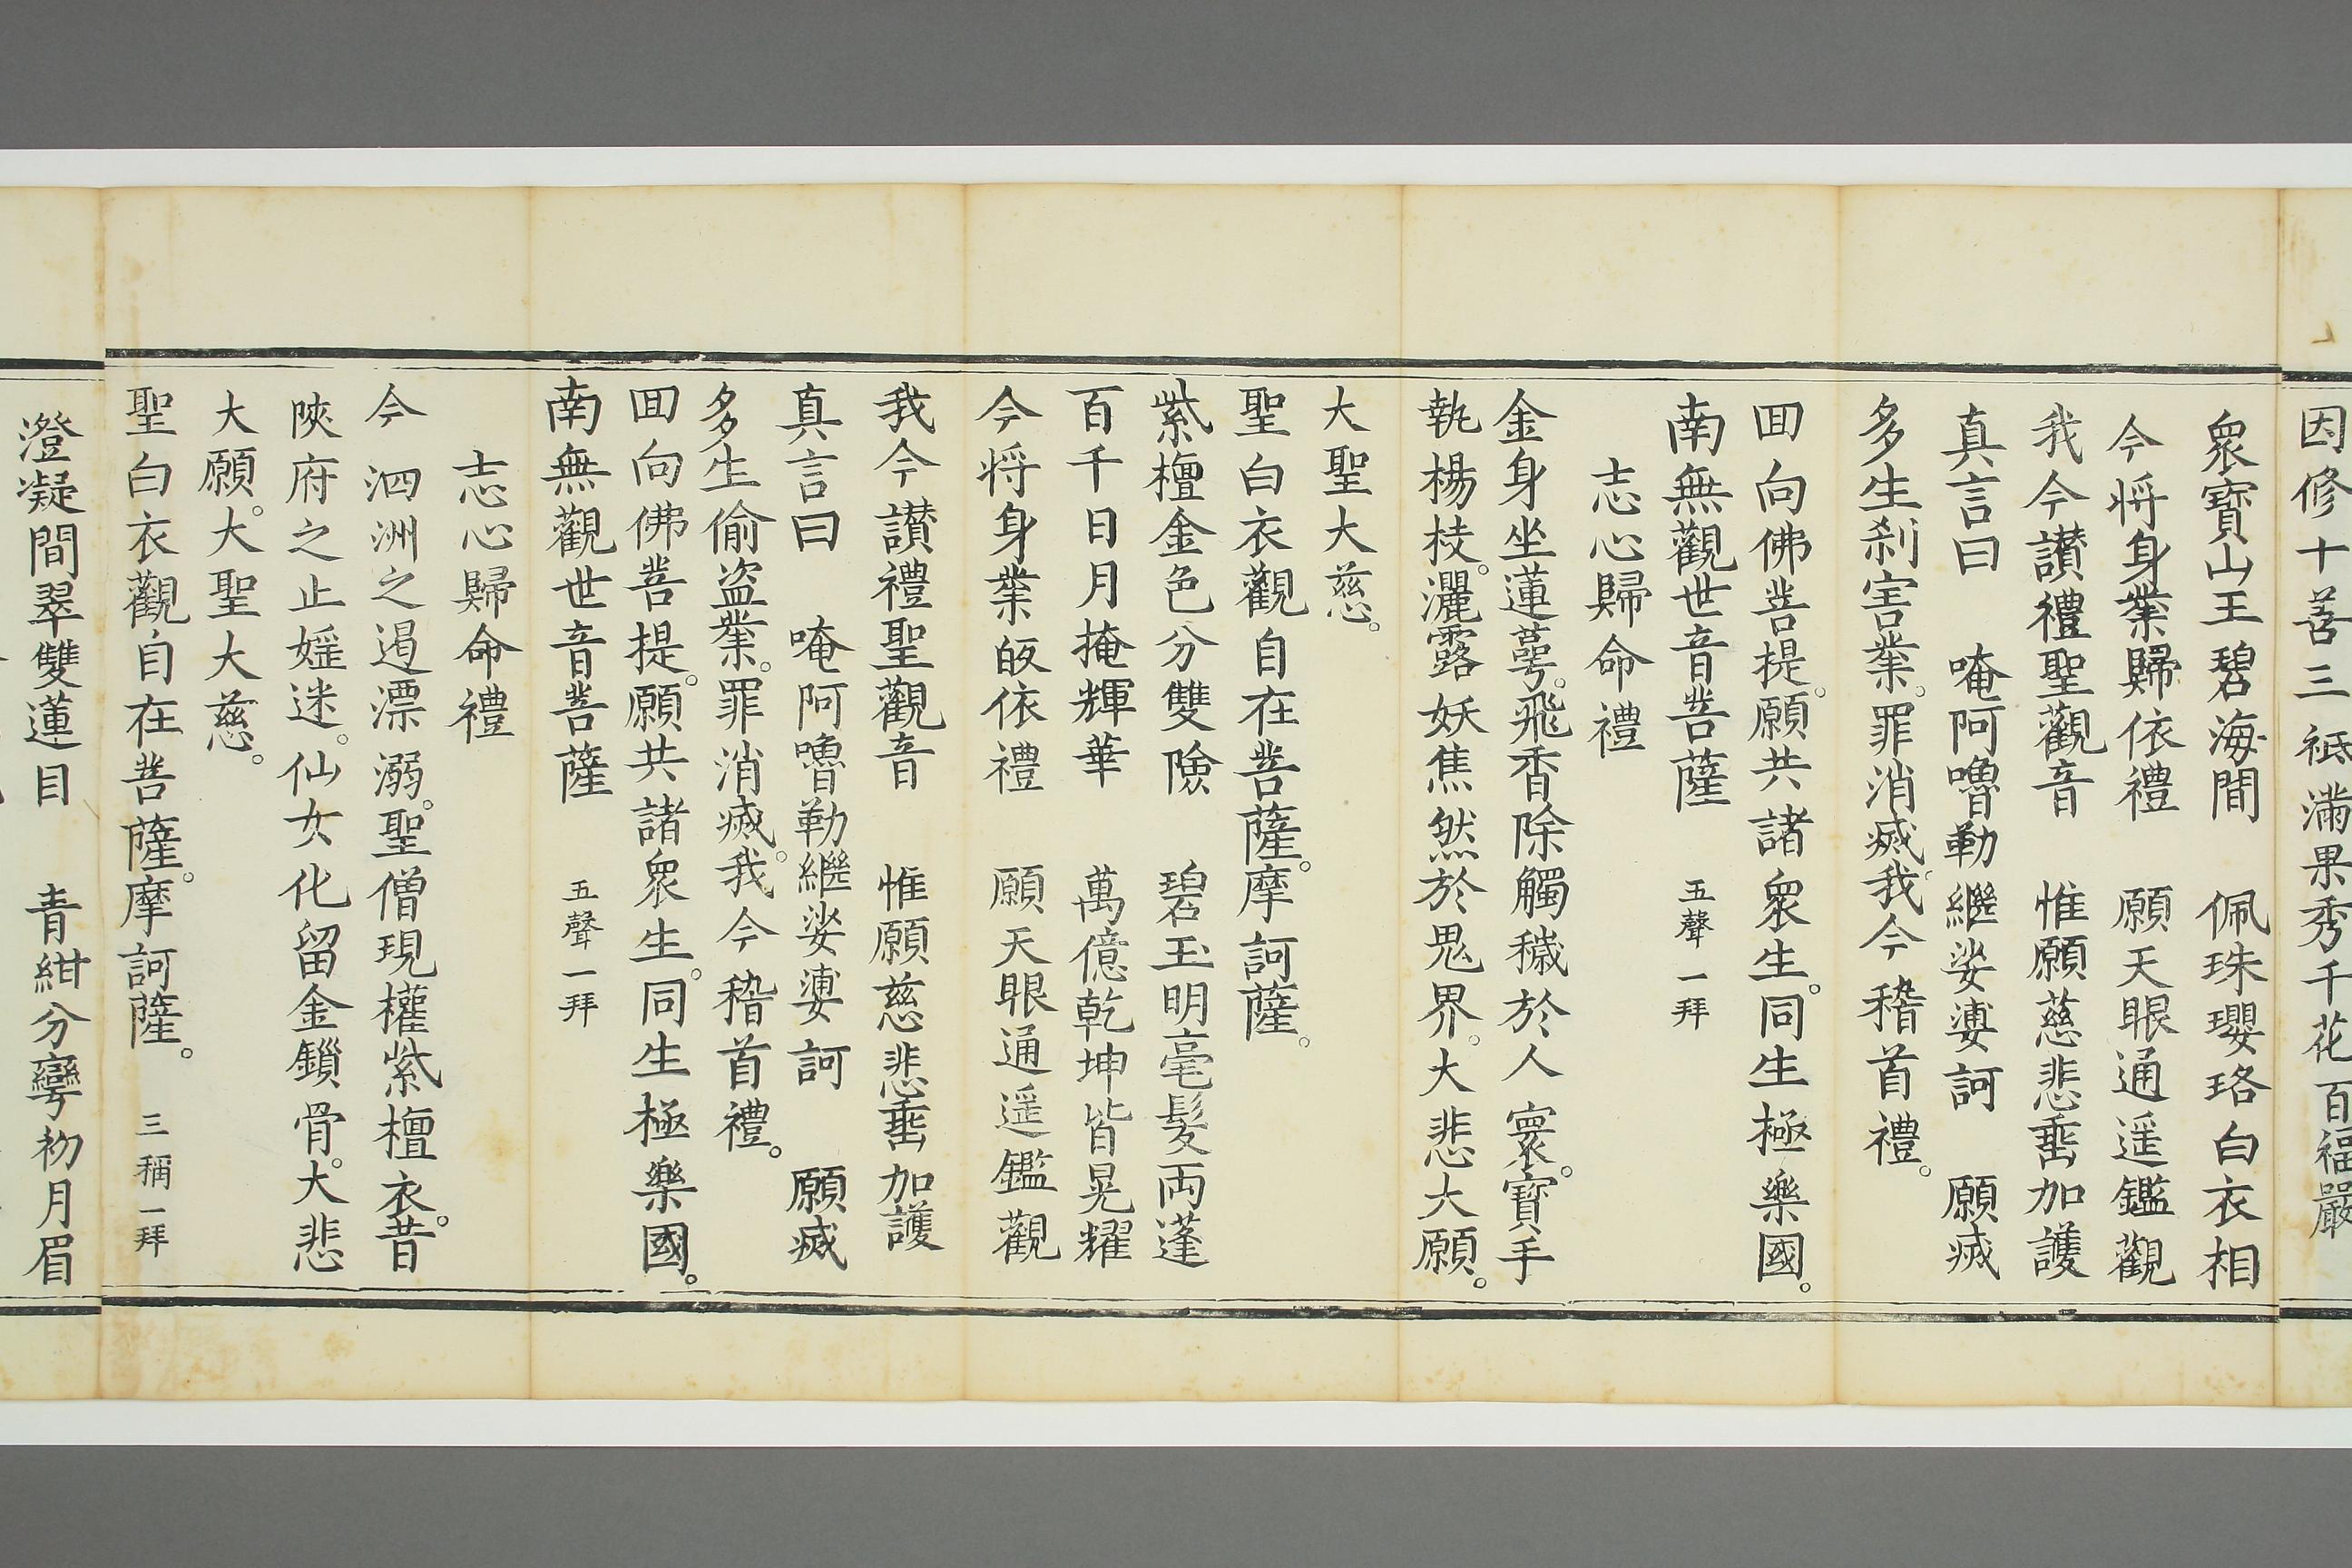 因修十善三祇滿果秀千花百福嚴
衆寶山王碧海間　佩珠瓔珞白衣相
今將身業歸依禮　願天眼通遥鑑觀
我今讃禮聖觀音　惟願慈悲垂加護
真言曰　唵阿嚕勒繼娑婆訶　願滅
多生刹害業。罪消滅。我今稽首禮。
囬向佛菩提。願共諸衆生。同生極樂國。
南無觀世音菩薩　五聲一拜
志心歸命禮
金身坐蓮萼。飛香除觸穢於人寰。寳手
執楊枝。灑露妖焦然於鬼界。大悲大願。
大聖大慈。
聖白衣觀自在菩薩。摩訶薩。
紫檀金色分雙險　碧玉明毫髮両蓬
百千日月掩輝華　萬億乾坤皆晃耀
今將身業皈依禮　願天眼通遥鑑觀
我今讃禮聖觀音　惟願慈悲垂加護
真言曰　唵阿嚕勒繼娑婆訶　願滅
多生偷盗業。罪消滅。我今稽首禮。
囬向佛菩提。願共諸衆生。同生極樂國。
南無觀世音菩薩　五聲一拜
志心歸命禮
今泗洲之遏漂溺。聖僧現權紫檀衣。昔
陜府之止婬迷。仙女化留金鎖骨。大悲
大願。大聖大慈。
聖白衣觀自在菩薩。摩訶薩。　三稱一拜
澄凝間翠雙蓮目　青紺分彎初月眉